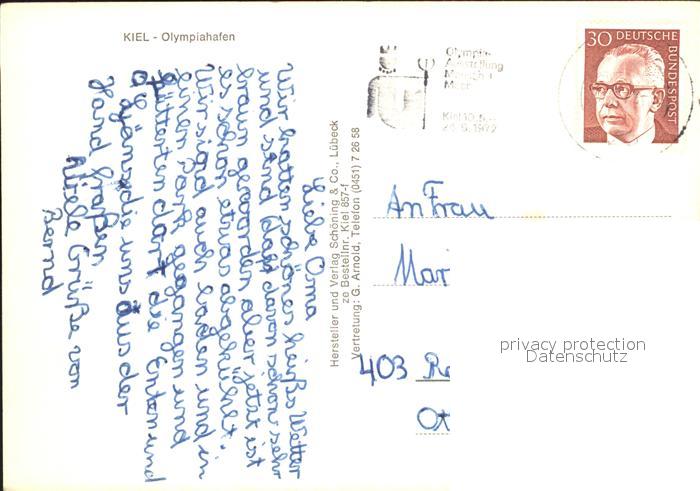 KIEL - Olympiahafen
Liebe Oma
Wir hatten schönes heißes Wetter
und sind davon schon sehr
braun geworden aber jetzt ist
es schon etwas abgekühlt.
Wir sind auch baden und in
einen Park gegangen und
fütterten dort die Enten und
Gänse die uns aus der
Hand fraßen
Viele Grüße von
Bernd
Hersteller und Verlag Schöning & Co., Lübeck
ze Bestellnr. Kiel 857-f
Vertretung: G. Arnold, Telefon (0451) 7 26 58
Olympia-
Ausstellung
Mensch +
Meer
30 DEUTSCHE
BUNDESPOST
An Frau
Mar
403
privacy protection
Datenschutz